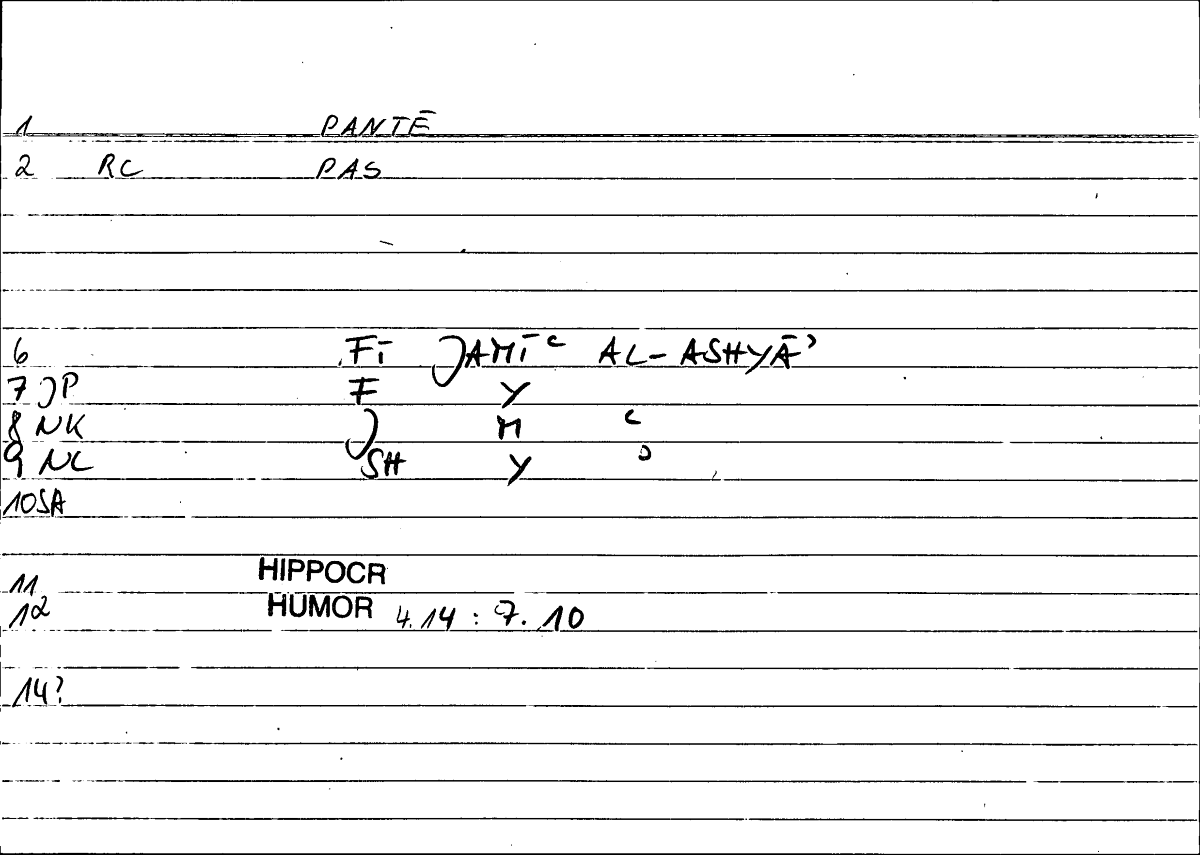 1 PANTĒ
2 RC PAS
6 FĪ JAMĪʿ AL-ASHYĀʾ
7 JP F Y
8 NK J M ʿ
9 NL SH Y ʾ
10 SA
11 HIPPOCR
12 HUMOR 4.14 : 7.10
14?